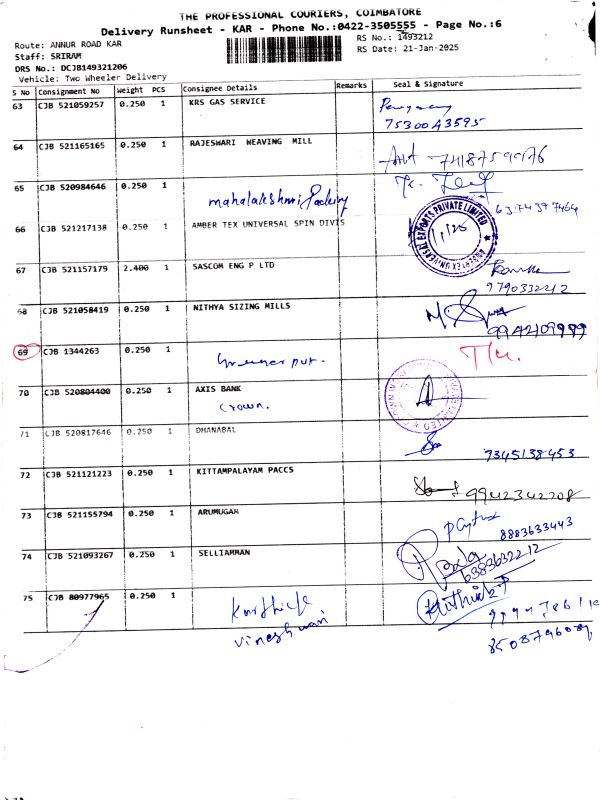 THE PROFESSIONAL COURIERS, COIMBATORE
Delivery Runsheet - KAR - Phone No.:0422-3505555 - Page No.:6
Route: ANNUR ROAD KAR
RS No.: 1493212
Staff: SRIRAM
RS Date: 21-Jan-2025
DRS No.: DCJB149321206
Vehicle: Two Wheeler Delivery
S No Consignment No Weight PCS Consignee Details Remarks Seal & Signature
63 CJB 521059257 0.250 1 KRS GAS SERVICE
64 CJB 521165165 0.250 1 RAJESWARI WEAVING MILL
65 CJB 520984646 0.250 1
mahalakshmi
66 CJB 521217138 0.250 1 AMBER TEX UNIVERSAL SPIN DIVIS
67 CJB 521157179 2.400 1 SASCOM ENG P LTD
9790332212
68 CJB 521058419 0.250 1 NITHYA SIZING MILLS
69 CJB 1344263 0.250 1
70 CJB 520804400 0.250 1 AXIS BANK
crown.
71 CJB 520817646 0.250 1 DHANABAL
7345138453
72 CJB 521121223 0.250 1 KITTAMPALAYAM PACCS
9942342208
73 CJB 521155794 0.250 1 ARUMUGAM
8883633443
74 CJB 521093267 0.250 1 SELLIAMMAN
6383632212
75 CJB 80977965 0.250 1
Karthick